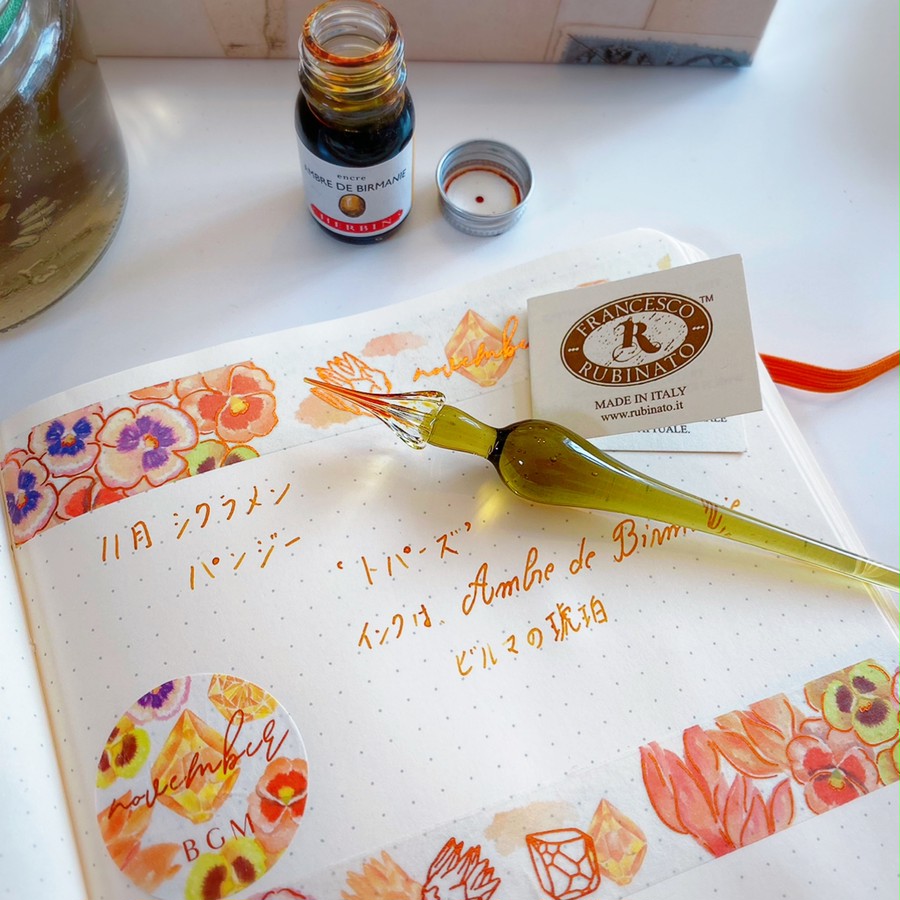 encre
AMBRE DE BIRMANIE
HERBIN
FRANCESCO
R
RUBINATO
TM
MADE IN ITALY
www.rubinato.it
november
11月 シクラメン
パンジー
'トパーズ'
インクは、Ambre de Birmanie
ビルマの琥珀
november
BGM